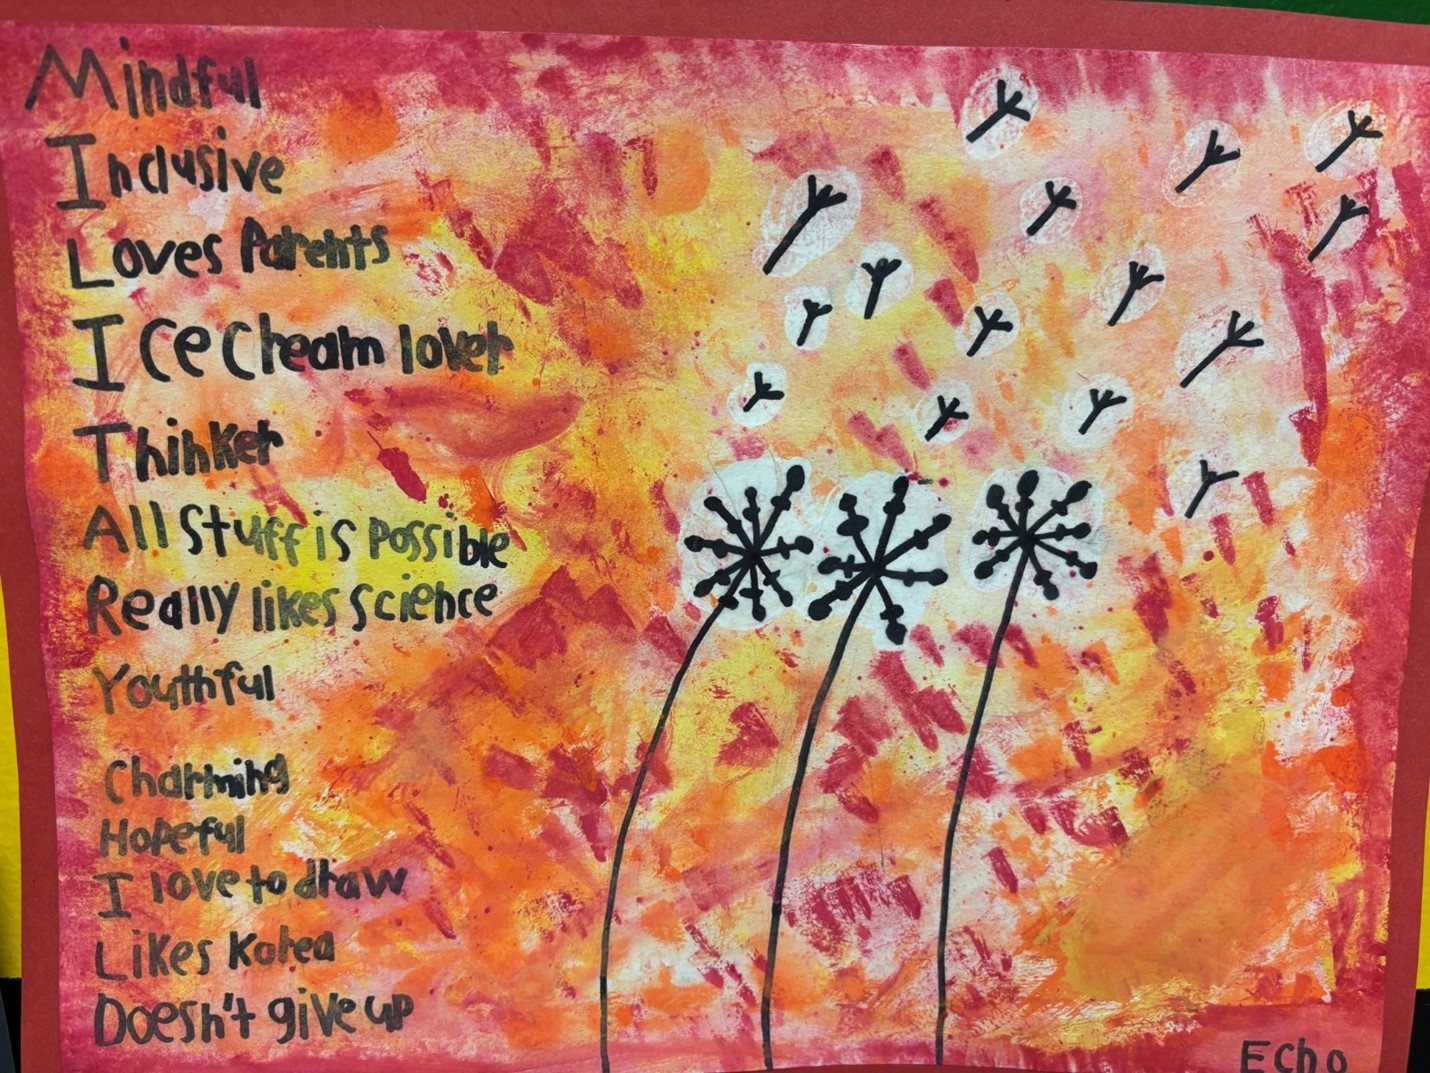 Mindful
Inclusive
Loves Parents
Ice Cream lover
Thinker
All Stuff is Possible
Really likes Science
Youthful
Charming
Hopeful
I love to draw
Likes Korea
Doesn't give up
Echo